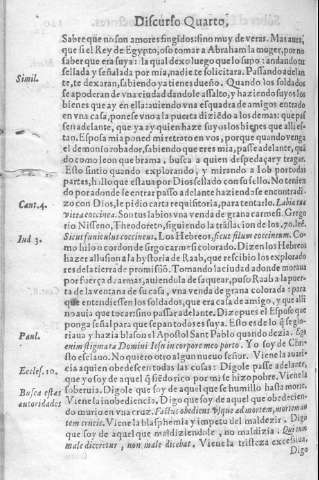 Discurso Quarto,
Sabre que no son amores fingidos: sino muy de veras. Mas aura,
que si el Rey de Egypto, oso tomar a Abraham la moger, por no
saber que era suya: la qual dexo luego que lo supo: andando tu
sellada y señalada por mia, nadie te solicitara. Passando adelan
te, te dexaran, sabiendo ya tienes dueño. Quando los soldados
se apoderan de vna ciudad dandole assalto, y haziendo suyos los
bienes que ay en ella: auiendo vna esquadra de amigos entrado
en vna casa, ponese vno a la puerta diziẽdo a los demas: que pas
sen adelante, que ya ay quien haze suyos los bienes que alli es-
tan. Esposa mia poned mi retrato en vos, porque quando venga
el demonio robador, sabiendo que eres mia, passe adelante,
do como leon que brama, busca a quien despedaçar y tragar.
Esto sintio quando explorando, y mirando a Iob por todas
partes, hallo que estaua por Dios sellado con su sello. No tenien
do por adonde entrar passo adelante haziendose encontradi-
zo con Dios, le pidio carta requisitoria, para tentarlo. Labia tua
vitta coccinea. Son tus labios vna venda de grana carmesi. Grego
rio Nisseno, Theodoreto, siguiendo la traslacion de los 70. leẽ.
Sicut funiculus coccineus. Los Hebreos, sicut filum coccineum. Co
mo hilo o cordon de sirgo carmesi colorado. Dizen los Hebreos
hazer allusion a la hystoria de Raab, que rescibio los explorado
res de la tierra de promissiõ. Tomando la ciudad adonde moraua
por fuerça de armas, auiendola de saquear, puso Raab a la puer-
ta de la ventana de su casa, vna venda de grana colorada: para
que entendiessen los soldados, que era casa de amigo, y que alli
no auia que tocar: sino passar adelante. Dize pues el Esposo que
ponga señal para que sepan todos es suya. Esto es de lo q̃ se glo-
riaua y hazia blason el Apostol Sant Pablo quando dezia. Ego
enim stigmata Domini Iesu in corpore meo porto. Yo soy de Chri-
sto esclauo. No quiero otro algun nueuo señor. Viene la auari-
cia a quien obedescen todas las cosas: Digole passe adelante,
que yo soy de aquel q̃ siẽdo rico por mi se hizo pobre. Viene la
soberuia. Digole que soy de aquel que se humillo hasta morir.
Viene la inobediencia. Digo que soy de aquel que obedecien-
do murio en vna cruz. Factus obediens vsque ad mortem, mortem au
tem crucis. Viene la blasphemia y impetu del maldezir. Digo
que soy de aquel que maldiziendole, no maldizia. Qui cum
male diceretur, non male dicebat. Viene la tristeza excessiua,
Digo
Simil.
Cant. 4.
Iud. 3.
Paul.
Eccles. 10.
Busca estas
autoridades